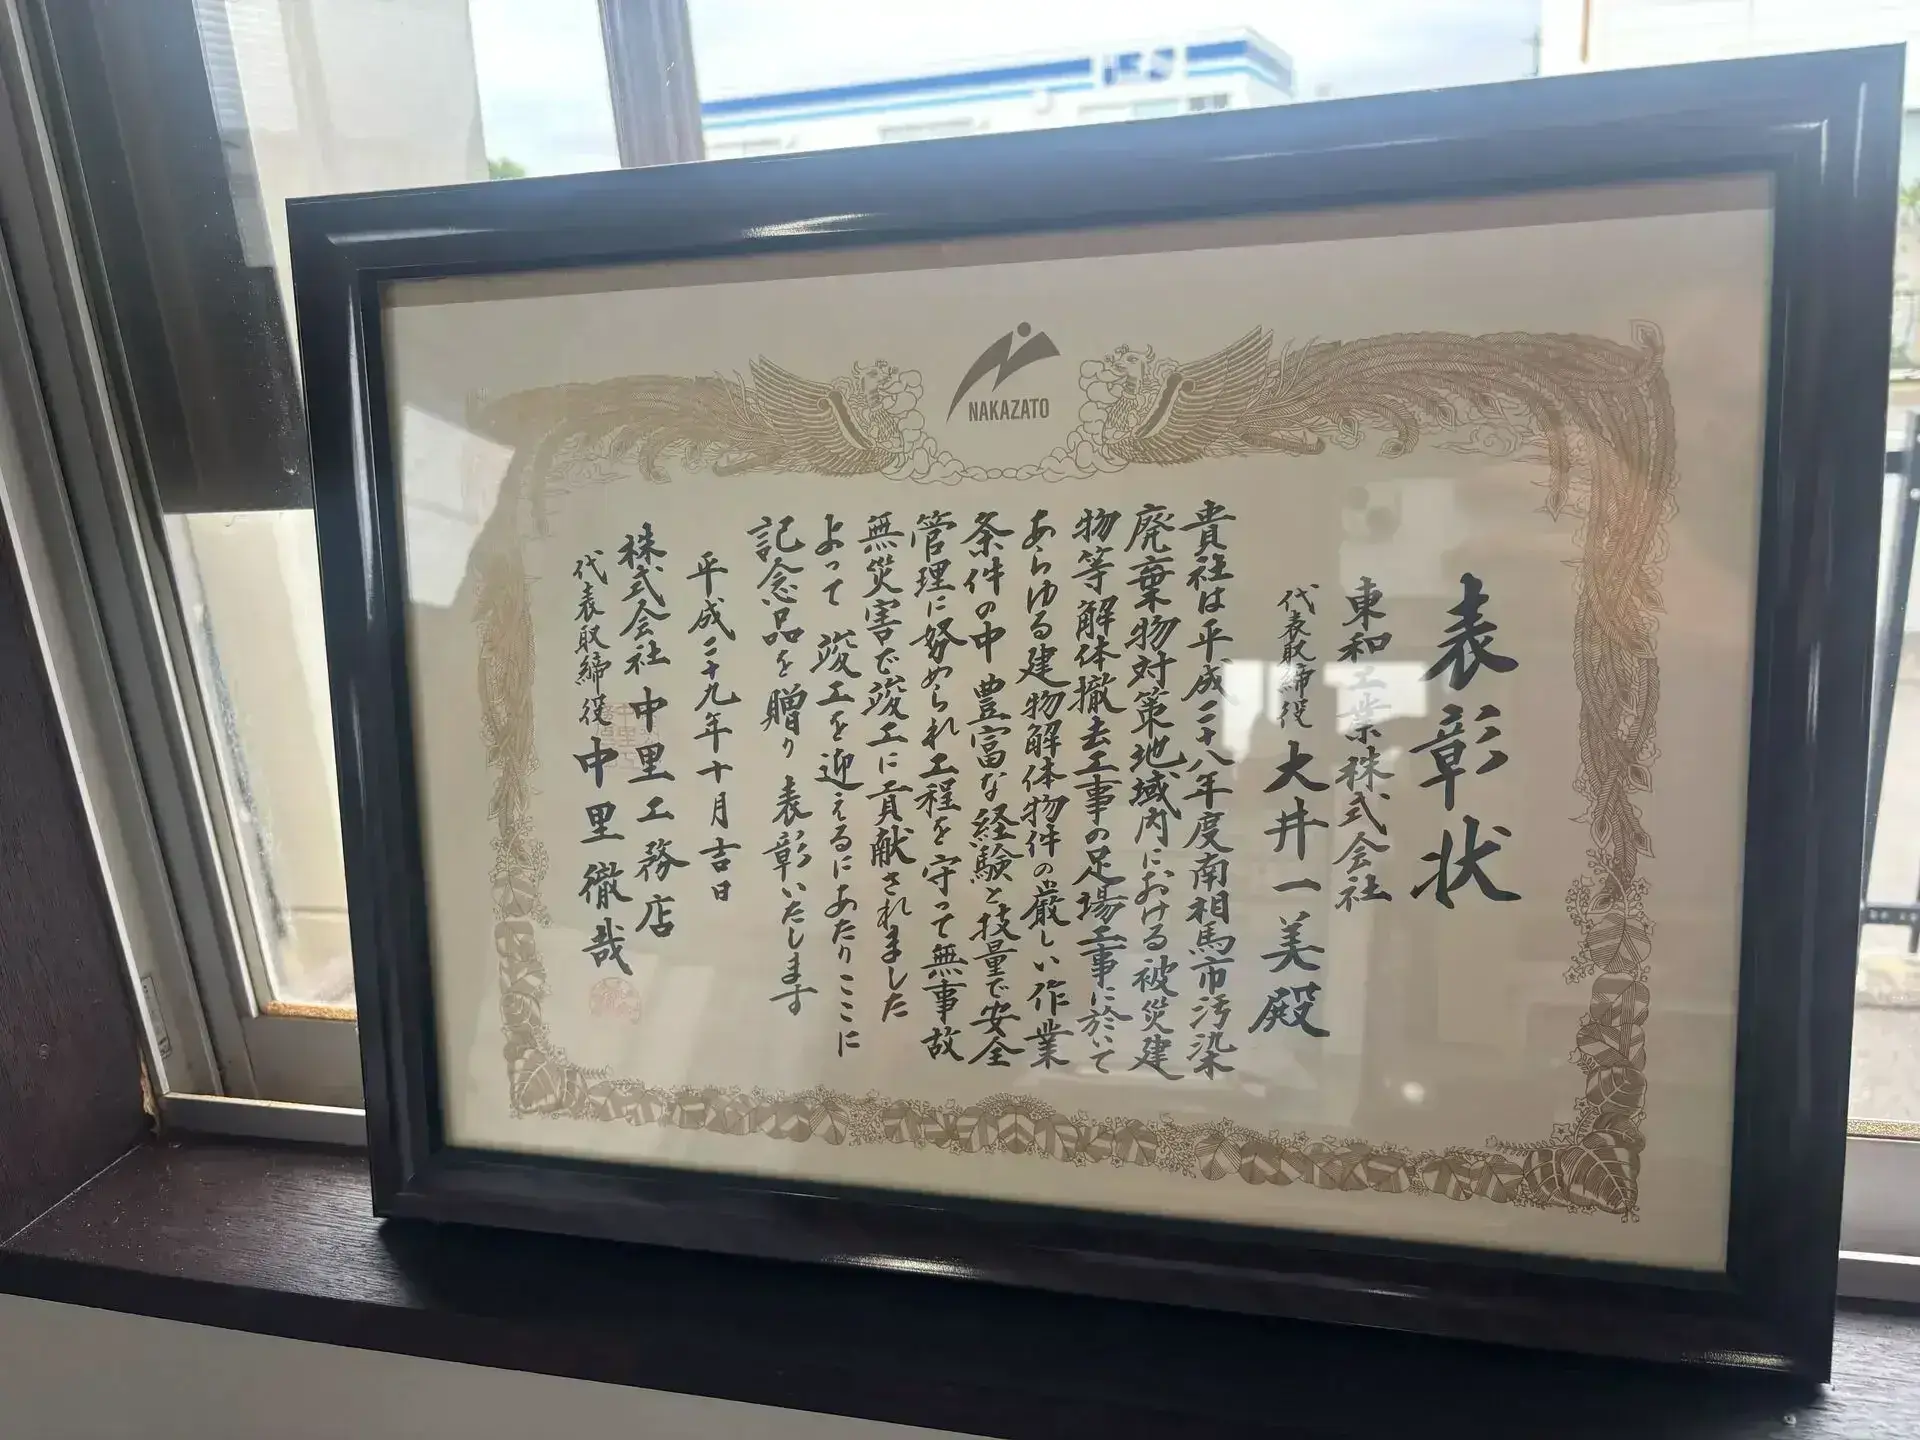 NAKAZATO
表彰状
東和工業株式会社
代表取締役 大井一美殿
貴社は平成二十八年度南相馬市汚染
廃棄物対策地域内における被災建
物等解体撤去工事の足場工事に於いて
あらゆる建物解体物件の厳しい作業
条件の中 豊富な経験と技量で安全
管理に努められ工程を守って無事故
無災害で竣工に貢献されました
よって 竣工を迎えるにあたりここに
記念品を贈り 表彰いたします
平成二十九年十月吉日
株式会社 中里工務店
代表取締役 中里徹哉